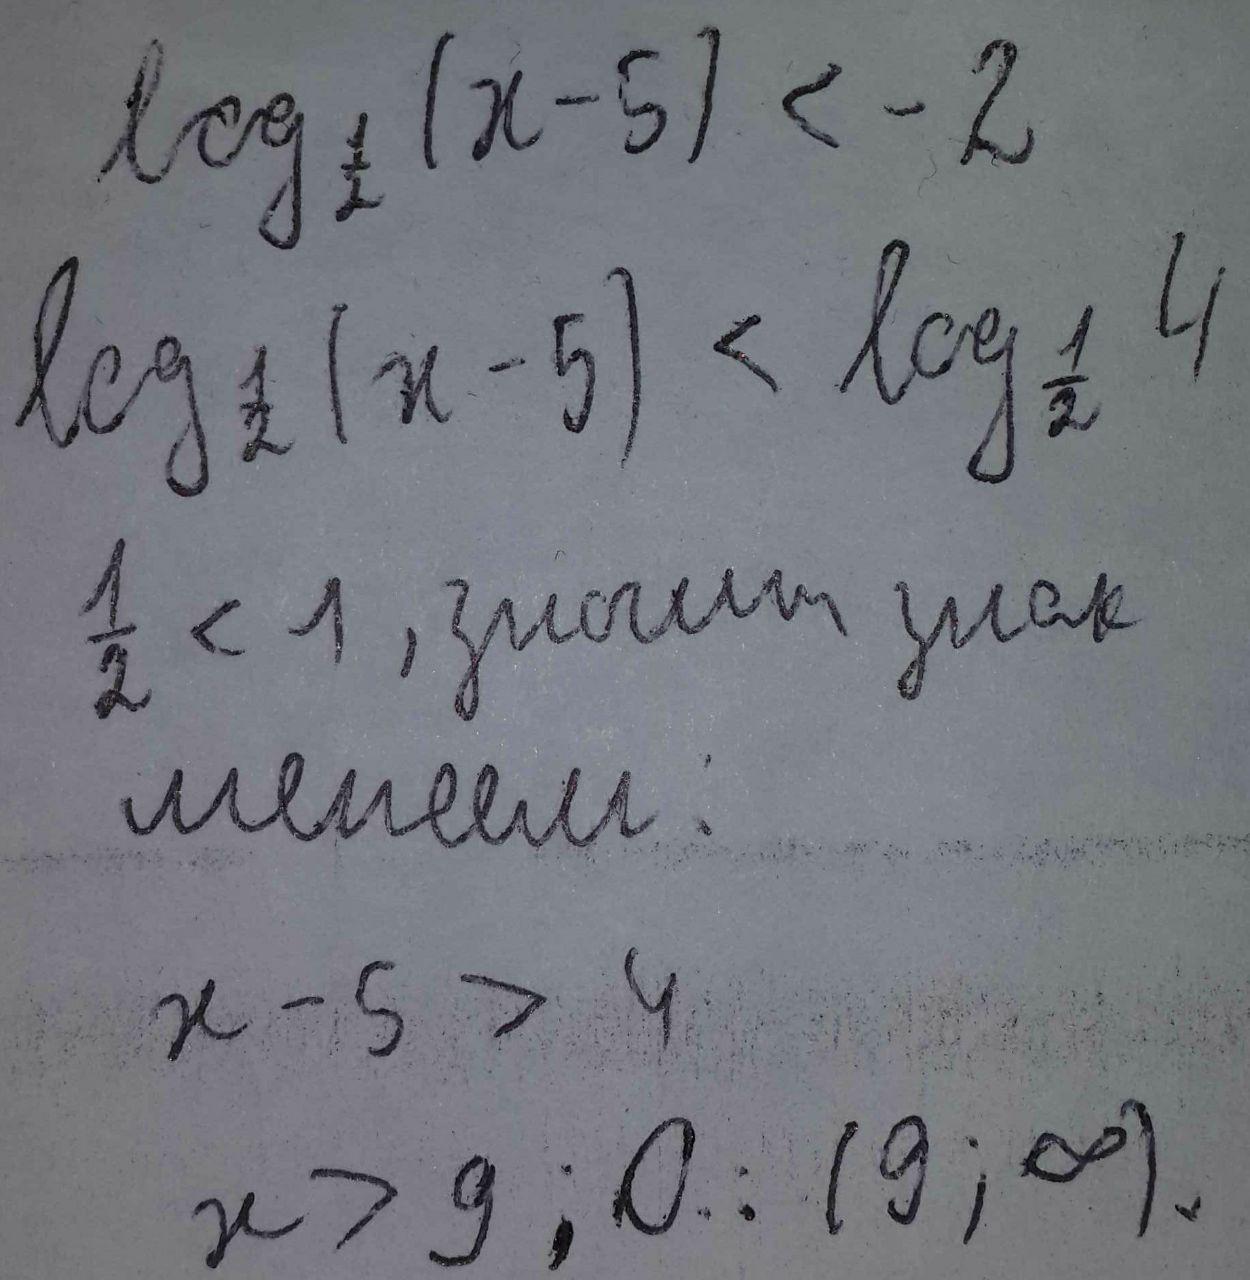 log½(x-5) < -2
log½(x-5) < log½4
½ < 1, значит знак
меняем:
x - 5 > 4
x > 9; О.: (9; ∞).